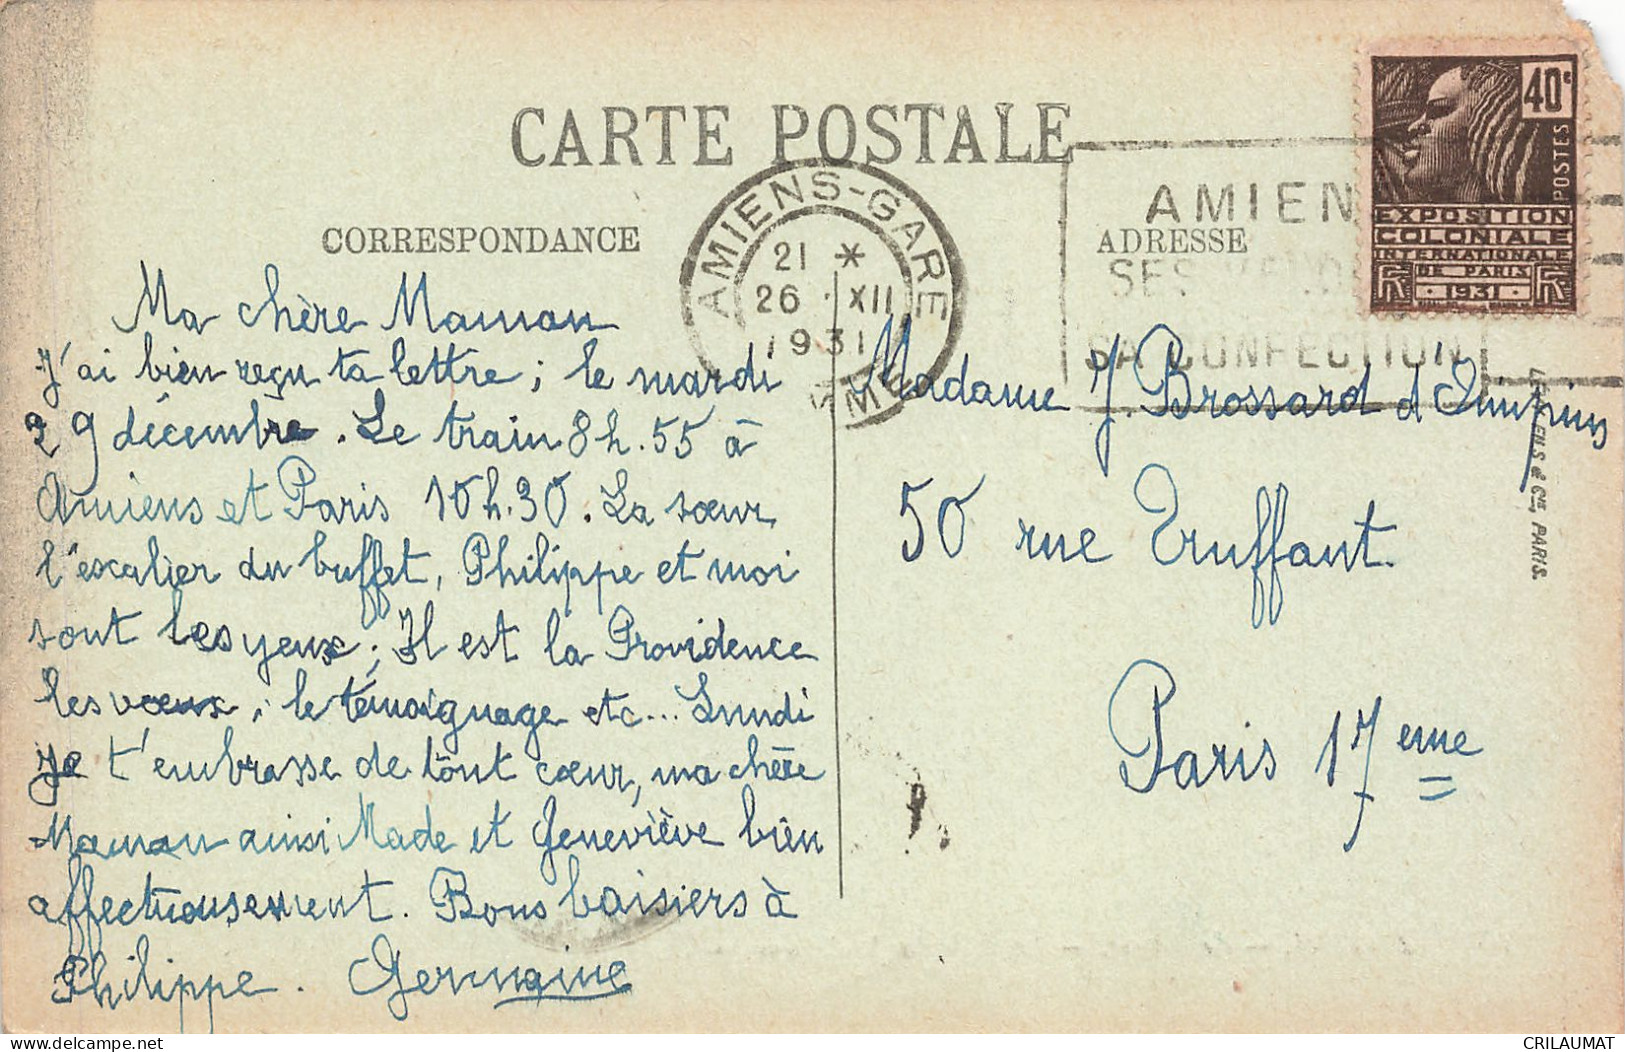 CARTE POSTALE
CORRESPONDANCE
ADRESSE
AMIENS-GARE
21 *
26 · XII
1931
SOMME
AMIEN
SES
SA CONFECTION
40c
POSTES
EXPOSITION
COLONIALE
INTERNATIONALE
DE PARIS
· 1931 ·
Ma chère Maman
J'ai bien reçu ta lettre ; le mardi
29 décembre. Le train 8h.55 à
Amiens et Paris 10h.30. La sœur
l'escalier du buffet, Philippe et moi
sont les yeux ; Il est la Providence
les vœux, le témoignage etc... Lundi
Je t'embrasse de tout cœur, ma chère
Maman ainsi Made et Geneviève bien
affectuousement. Bons baisiers à
Philippe. Germaine
Madame J. Brossard d'
50 rue Truffaut.
Paris 17eme
& Cie, PARIS.
delcampe.net
CRILAUMAT